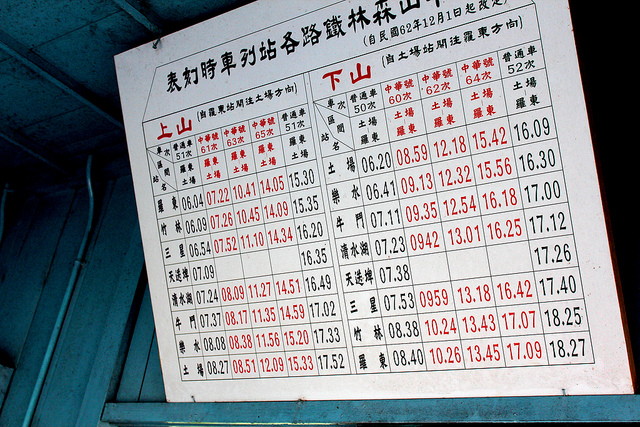 山森林鐵路各站列車時刻表
(自民國62年12月1日起改定)
上山 (自羅東站開往土場方向)
車次 普通車 中華號 中華號 中華號 普通車
51次 61次 63次 65次 51次
區間 羅東 羅東 羅東 羅東 羅東
站名 土場 土場 土場 土場 土場
羅東 06.04 07.22 10.41 14.05 15.30
竹林 06.09 07.26 10.45 14.09 15.35
三星 06.54 07.52 11.10 14.34 16.20
天送埤 07.09 16.35
清水湖 07.24 08.09 11.27 14.51 16.49
牛門 07.37 08.17 11.35 14.59 17.02
樂水 08.08 08.38 11.56 15.20 17.33
土場 08.27 08.51 12.09 15.33 17.52
下山 (自土場站開往羅東方向)
車次 普通車 中華號 中華號 中華號 普通車
50次 60次 62次 64次 52次
區間 土場 土場 土場 土場 土場
站名 羅東 羅東 羅東 羅東 羅東
土場 06.20 08.59 12.18 15.42 16.09
樂水 06.41 09.13 12.32 15.56 16.30
牛門 07.11 09.35 12.54 16.18 17.00
清水湖 07.23 0942 13.01 16.25 17.12
天送埤 07.38 17.26
三星 07.53 0959 13.18 16.42 17.40
竹林 08.38 10.24 13.43 17.07 18.25
羅東 08.40 10.26 13.45 17.09 18.27